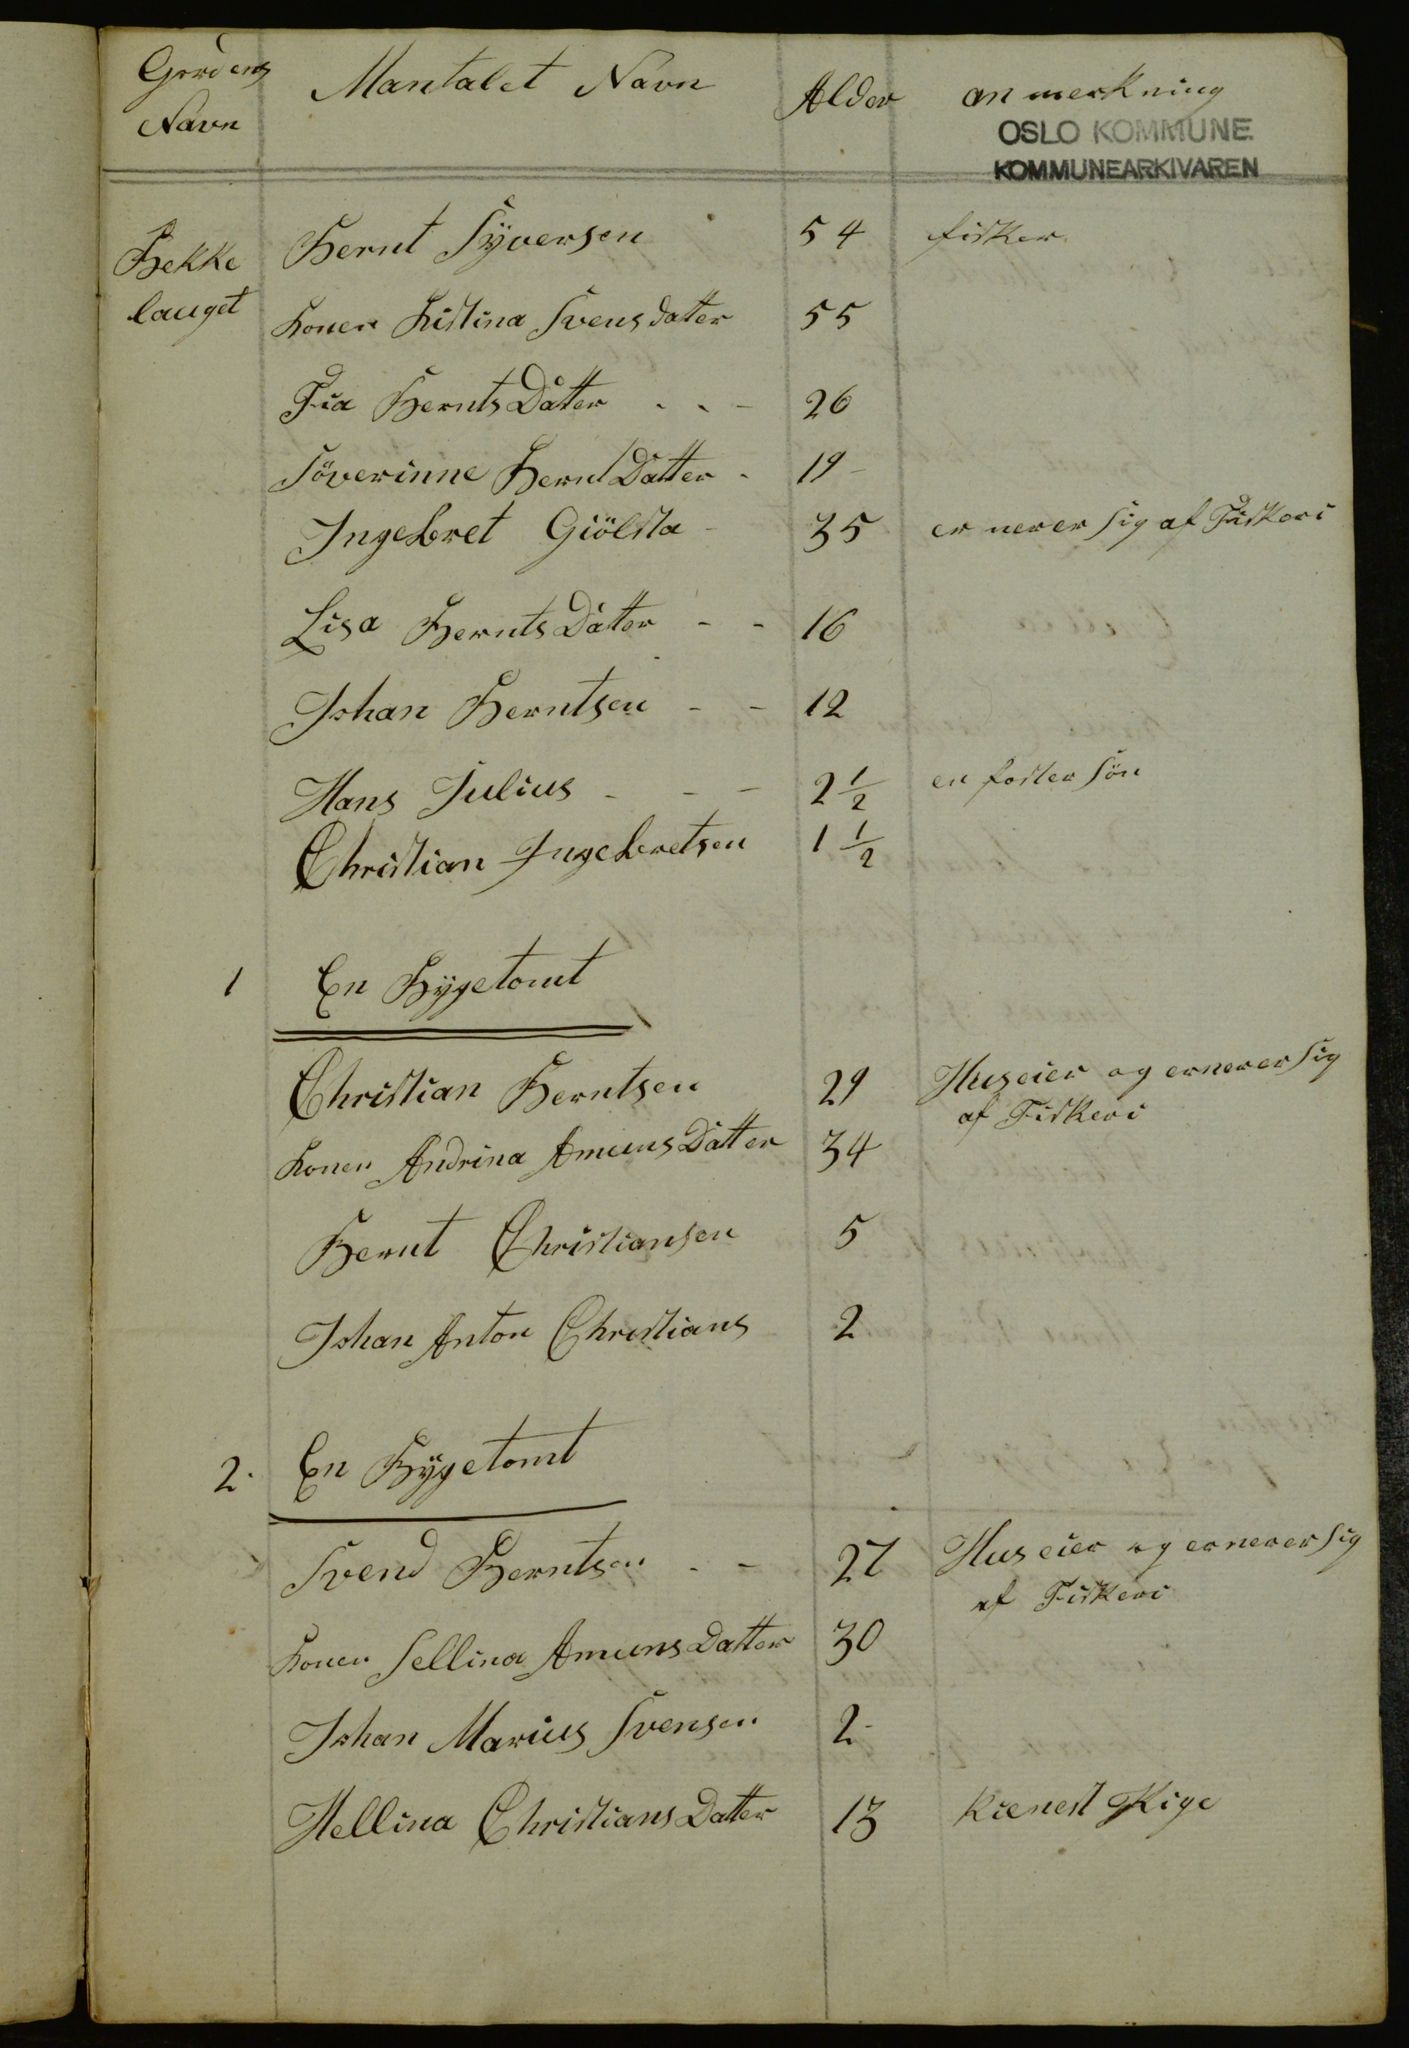 Gordens Navn
Mantalet Navn
Alder
anmerkning
OSLO KOMMUNE
KOMMUNEARKIVAREN
Bekke
lauget
Bernt Syversen 54 fisker
Konen Kistina Svensdatter 55
Fia BerntsDatter - - - 26
Söverinne BerntDatter - 19 -
Ingebret Giölsta - 35 er nerer sig af Fiskeri
Lisa BerntsDatter - - 16
Johan Berntsen - - 12
Hans Julius - - - 2 1/2 en foster sön
Christian Ingebretsen 1 1/2
1 En Bygetomt
Christian Berntsen 29 Huseier og ernerer sig
af Fiskeri
Konen Andrina AmunsDatter 34
Bernt Christiansen 5
Johan Anton Christians 2
2. En Bygetomt
Svend Berntsen - - 27 Huseier og ernerer sig
af Fiskeri
Konen Sellina AmunsDatter 30
Johan Marius Svensen 2 -
Hellina ChristiansDatter 13